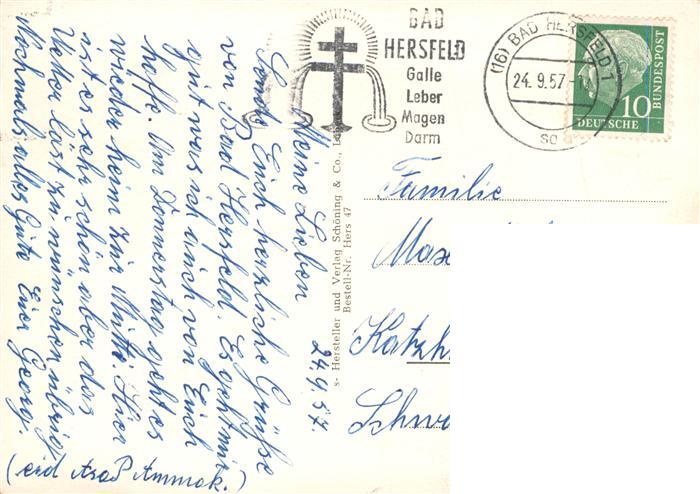 BAD
HERSFELD
Galle
Leber
Magen
Darm
(16) BAD HERSFELD 1
24. 9. 57
so
10
DEUTSCHE BUNDESPOST
24.9.57.
Meine Lieben
Sende Euch herzliche Grüße
von Bad Hersfeld. Es geht mir
gut was ich auch von Euch
hoffe. Am Donnerstag geht es
wieder heim zur Mutti. Hier
ist es sehr schön aber das
Wetter läst zu wünschen übrig
Nochmals alles Gute Euer Georg.
s- Hersteller und Verlag Schöning & Co., L
Bestell-Nr. Hers 47
Familie
Max
Katzh
Schw